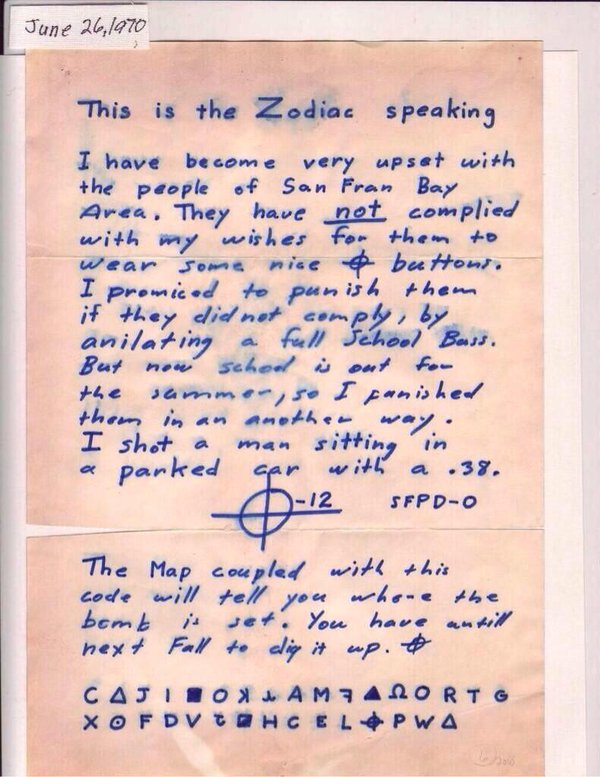 June 26, 1970
This is the Zodiac speaking
I have become very upset with
the people of San Fran Bay
Area. They have not complied
with my wishes for them to
wear some nice ⌖ buttons.
I promiced to punish them
if they did not comply, by
anilating a full School Buss.
But now school is out for
the summer, so I punished
them in an another way.
I shot a man sitting in
a parked car with a .38.
⌖-12 SFPD-0
The Map coupled with this
code will tell you where the
bomb is set. You have untill
next Fall to dig it up. ⌖
C Δ J I ■ O ꓘ ⅄ A M ꟻ ▲ Ω O R T G
X ⊙ F D V ㄘ ■ H C E L ⌖ P W Δ